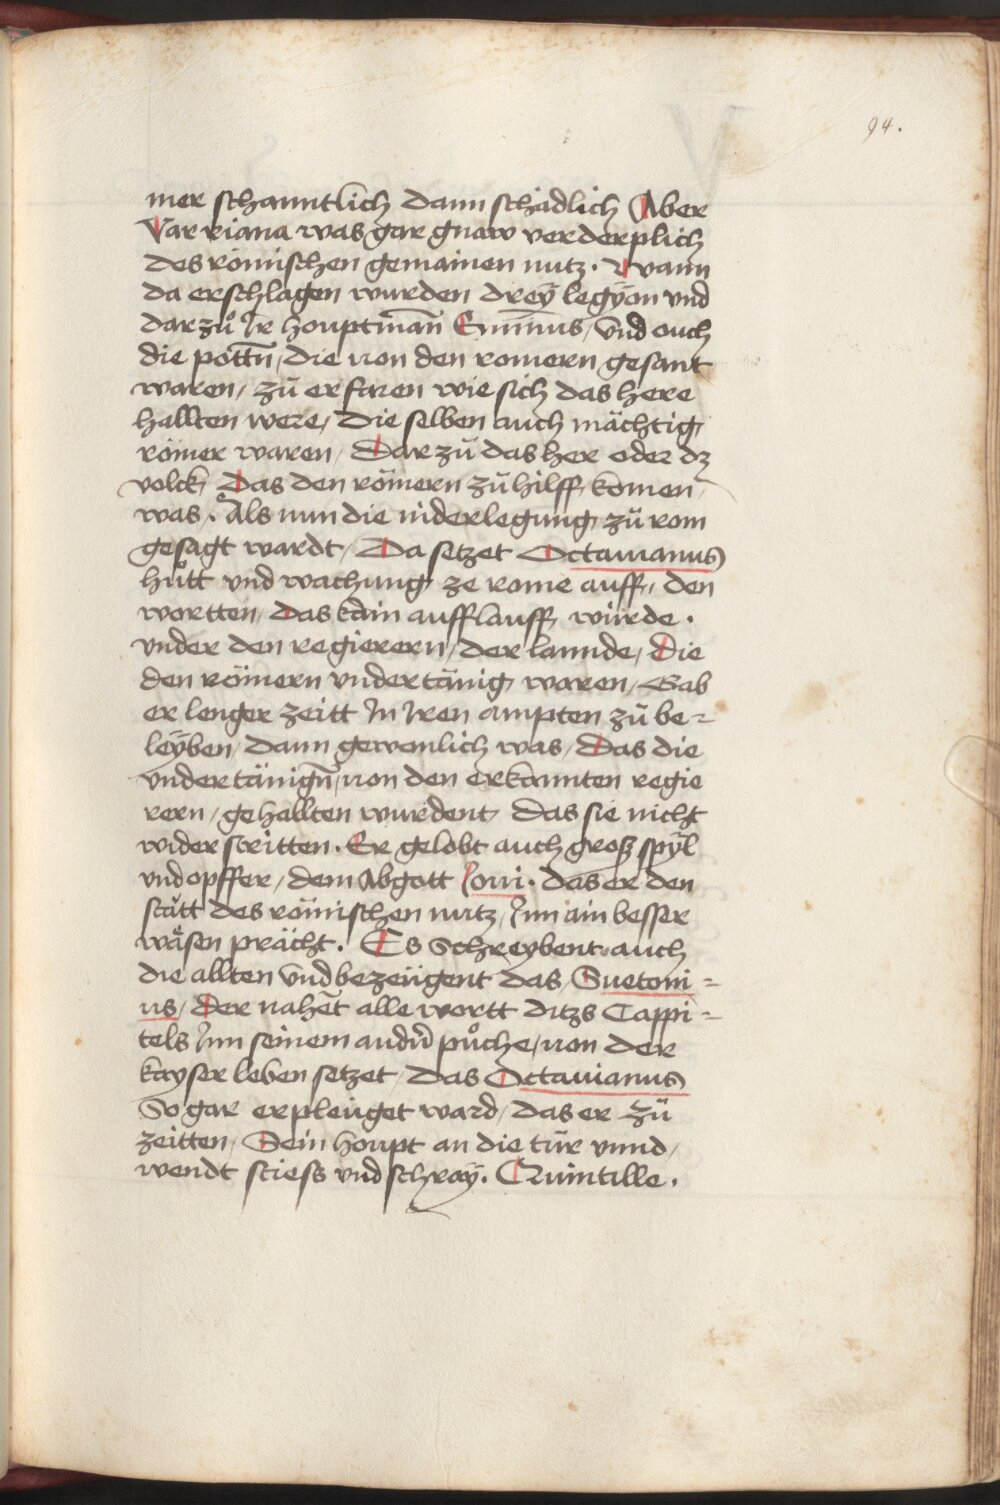 94.
mer schanntlich dann schädlich Aber
Varriana was gar gnaw verderplich
des römischen gemainen nutz. Wann
da erschlagen wurden dreÿ legÿon vnd
darzů Ir houptman̄ Em̄nus, vnd ouch
die pottn̄, die von den romern gesant
waren, zů erfaren wie sich das here
hallten were, die selben auch mächtig
römer waren, Darzů das her oder dz
volck, Das den römern zů hilff komen
was. Als nun die niderlegung zů rom
gesagt wardt, Da setzet Octauianus
hůtt vnd wachung ze rome auff, den
wortten, das kain aufflauff würde.
vnder den regierern, der lannde, Die
den römern vndertänig waren, Gab
er lenger zeitt In Iren ampten zů be=
leÿben, dann gewonlich was, Das die
vndertänign̄, von den erkannten regie
rern, gehallten wurdent, das sie nicht
widerstritten. Er gelobt auch groß spÿl
vnd opffer, dem Abgott Ioui. das er den
stătt des römischen nutz, Inn ain besser
wäsen prächt. Es Schreybent auch
die allten vnd bezeügent das Suetoni=
us, Der nahēt alle wortt ditzs Cappi=
tels Inn seinem andn̄ půche, von der
kayser leben setzet, das Octauianus
So gar erpleüget ward, das er zů
zeitten, Sein houpt an die tür vnnd,
wendt stiess vnd schraÿ. Quintille.